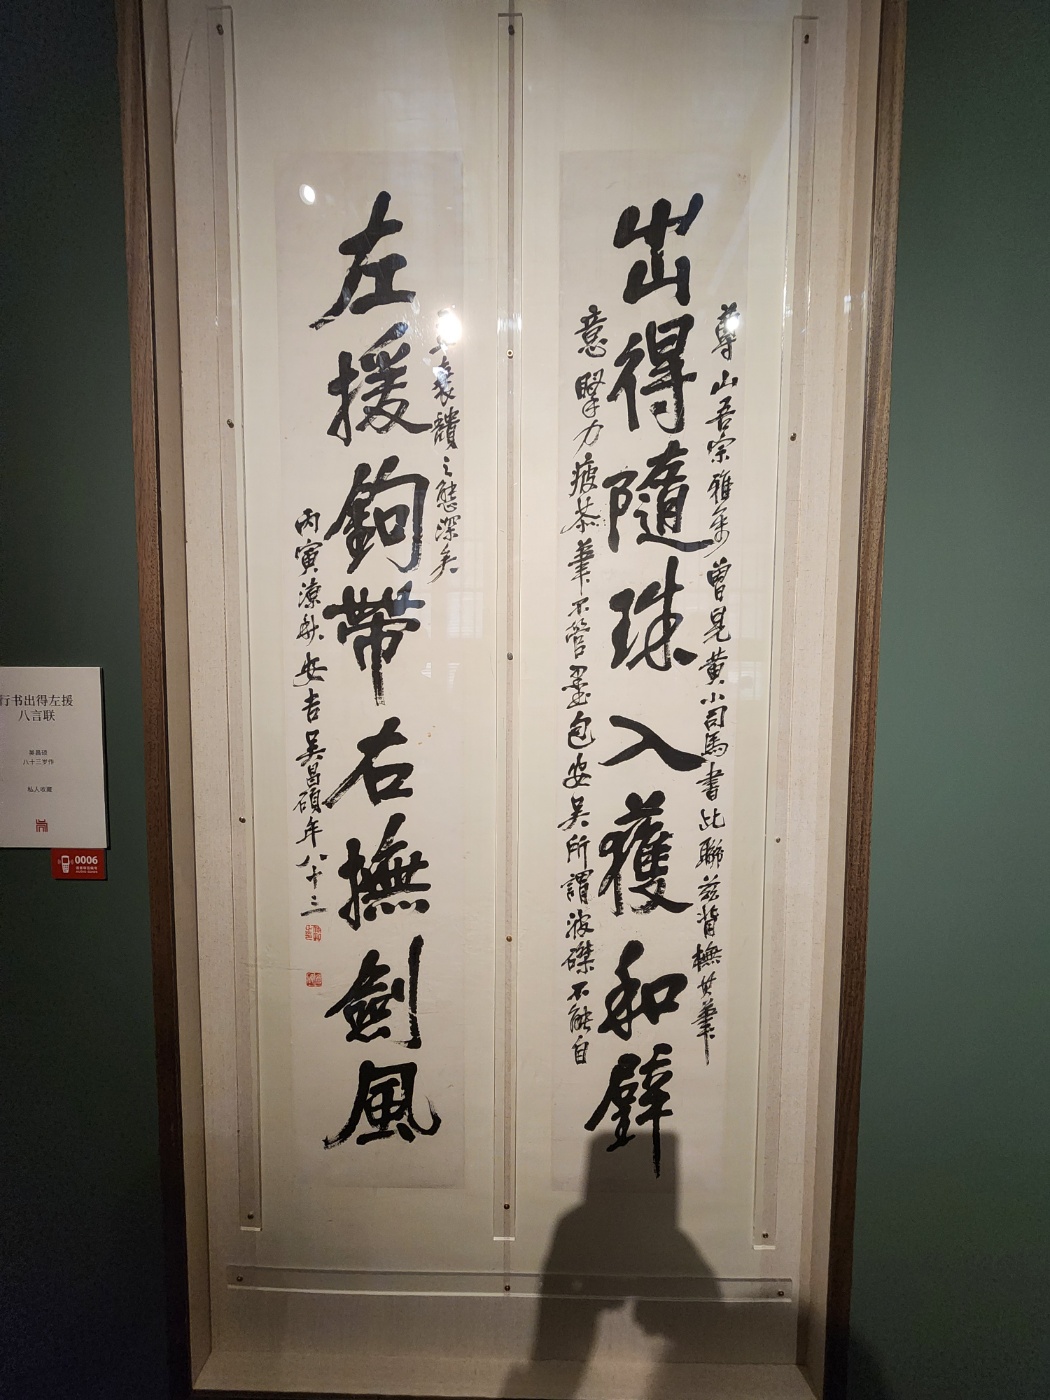 出得隨珠入獲和璧
尊山吾宗雅令 曾見黃小司馬書此聯茲背橅其筆
意擥力疲苶筆不管墨包安吳所謂波磔不能自
左援鉤帶右撫劍風
衰穨之態深矣
丙寅潦秋安吉吳昌碩年八十三
行书出得左援
八言联
吴昌硕
八十三岁作
私人收藏
0006